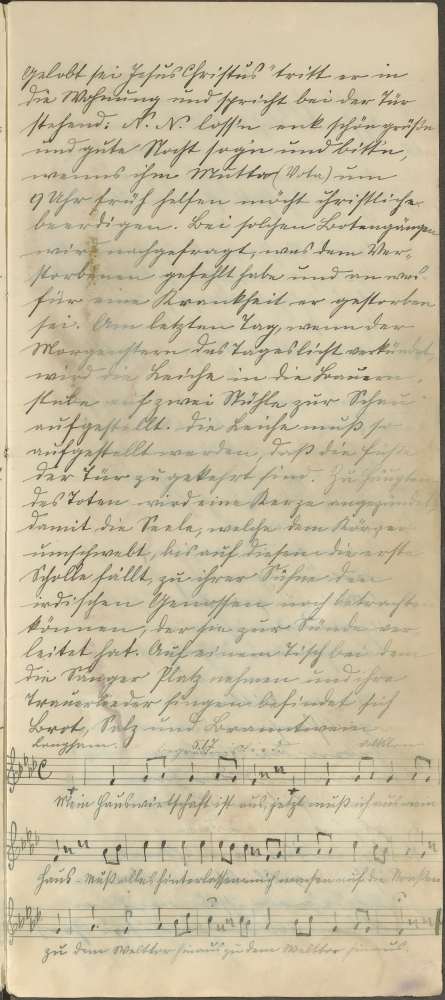 Gelobt sei Jesus Christus" tritt er in
die Wohnung und spricht bei der Tür
stehend: N. N. loss'n enk schön grüß'n
und gute Nacht sogn und bitt'n,
wenns ihm Mutta (Vota) um
9 Uhr früh helfen möcht christlicher
beerdigen. Bei solchen Botengängen
wird nachgefragt, was dem Ver-
storbenen gefehlt habe und an was
für eine Krankheit er gestorben
sei. Am letzten Tag, wenn der
Morgenstern das Tageslicht verkündet,
wird die Leiche in die Bauern-
stube auf zwei Stühle zur Schau
aufgestellt. Die Leiche muß so
aufgestellt werden, daß die Füße
der Tür zugekehrt sind. Zu Häupten
des Toten wird eine Kerze angezündet,
damit die Seele, welche dem Körper
umschwebt, bis auf diesem die erste
Scholle fällt, zu ihrer Sühne den
irdischen Genossen noch betrachten
können, der sie zur Sünde ver
leitet hat. Auf einem Tisch bei dem
die Sänger Platz nehmen und ihre
Trauerlieder singen befindet sich
Brot, Salz und Branntwein.
Langsam.
Mein Hauswirtschaft ist aus, jetzt muß ich aus mein
Haus muß alles hinterlassen mich machen auf die
zu dem Welttor hinaus zu dem Welttor hinaus.